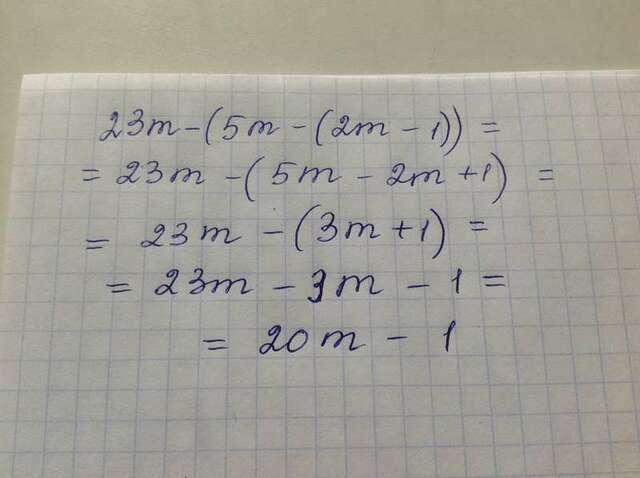 23m - (5m - (2m - 1)) =
= 23m - (5m - 2m + 1) =
= 23m - (3m + 1) =
= 23m - 3m - 1 =
= 20m - 1